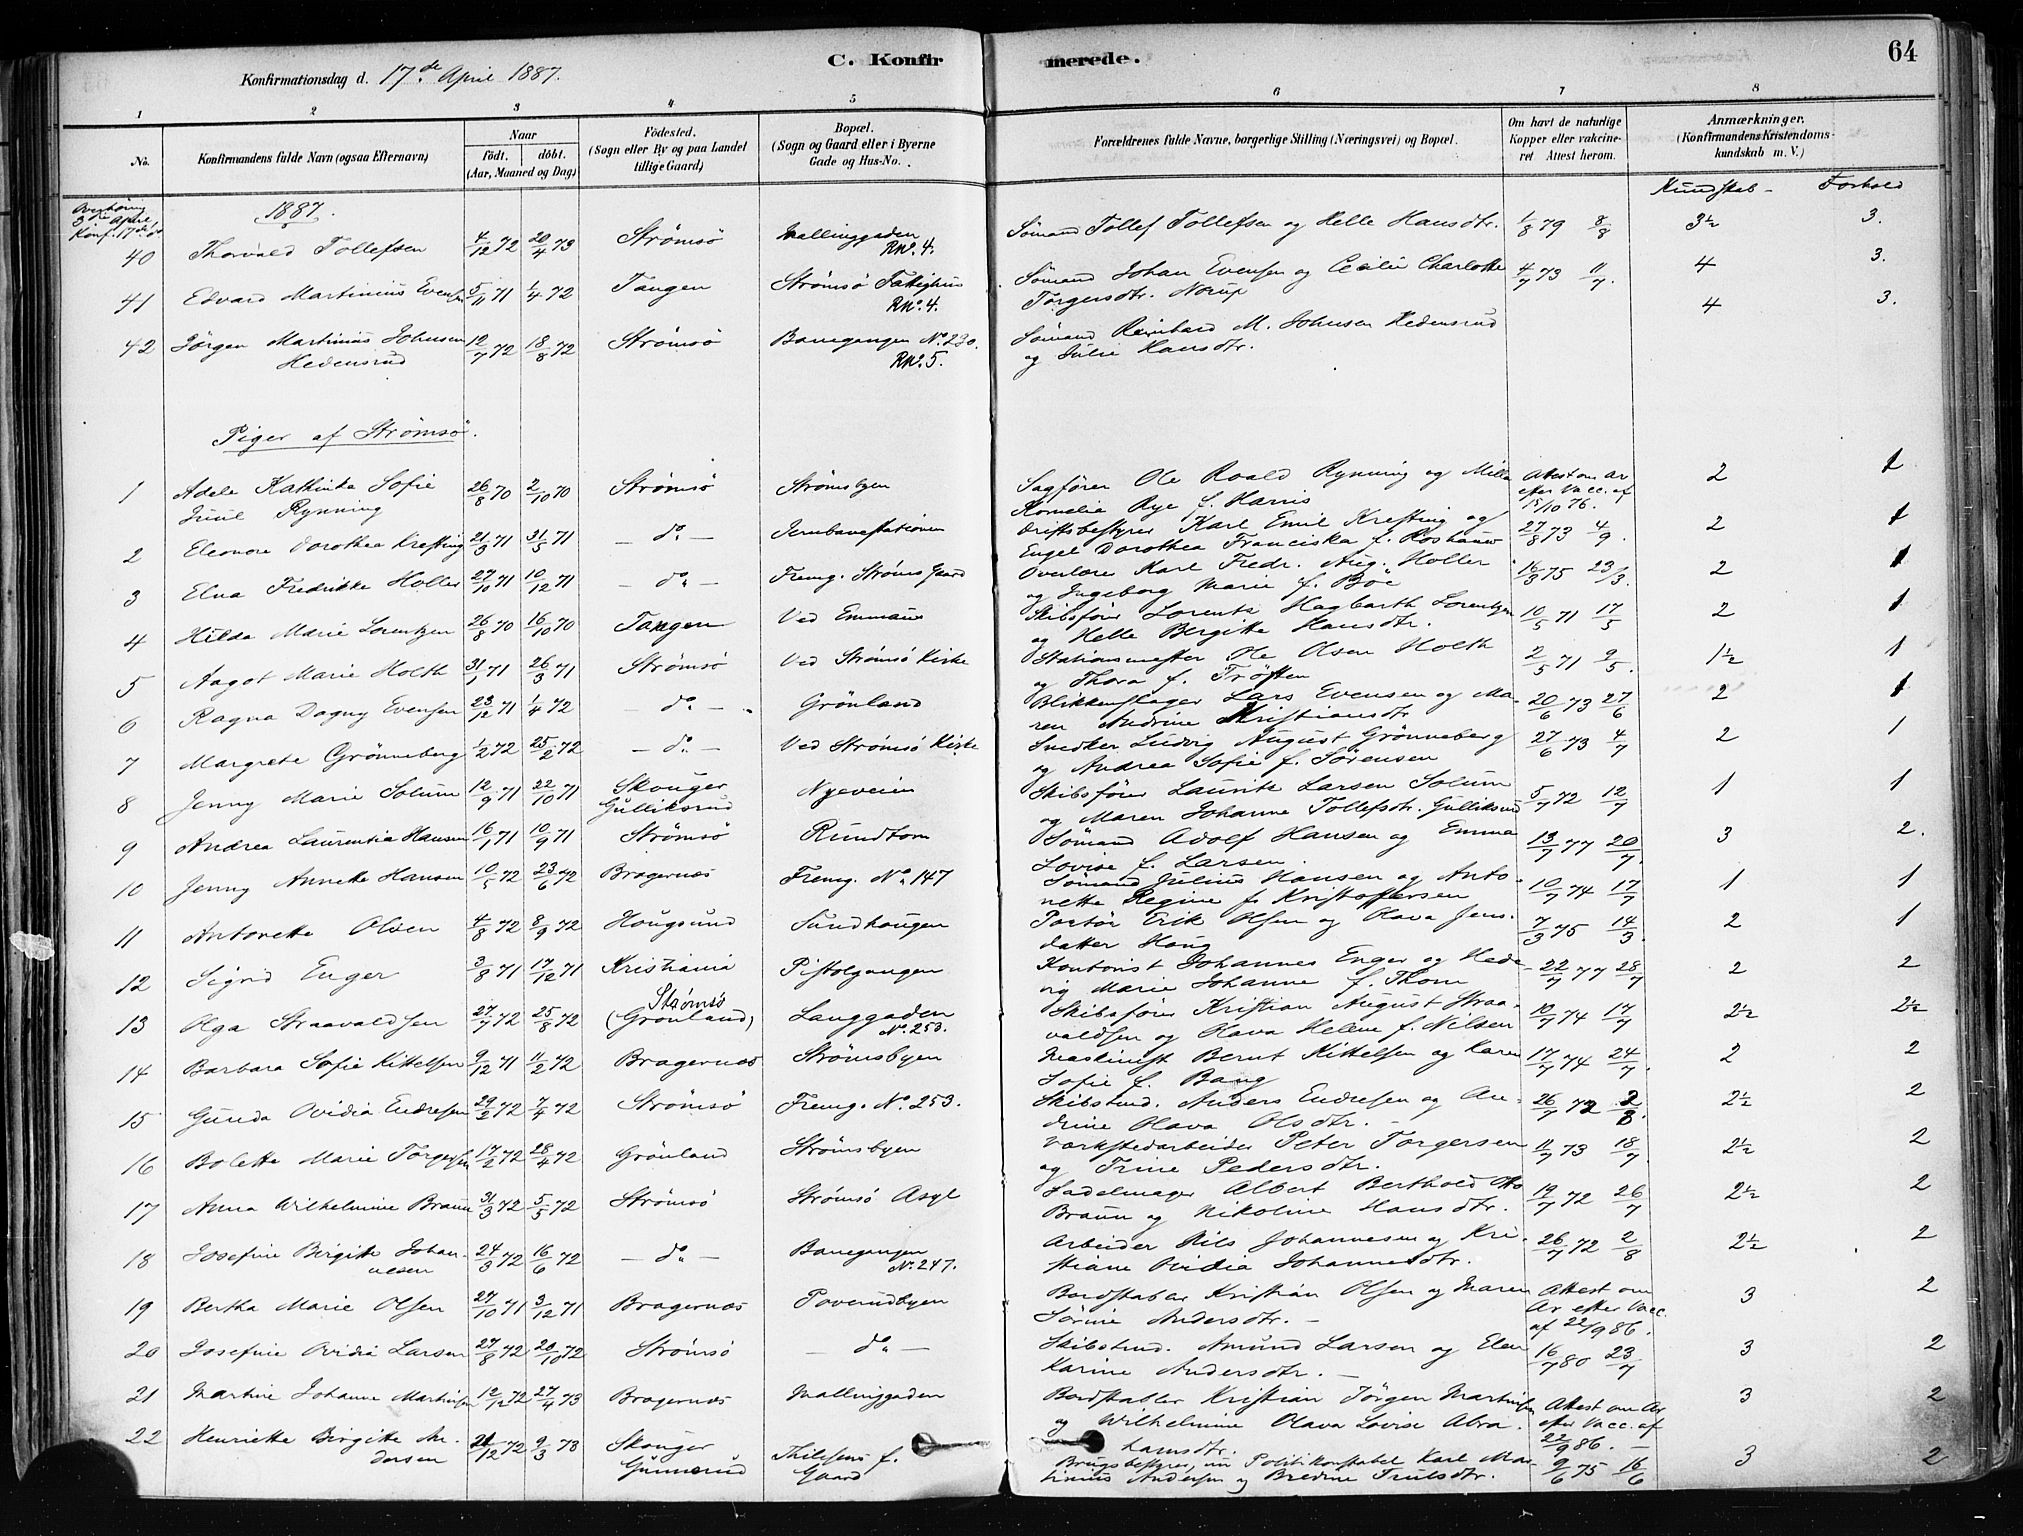 C. Konfirmerede.
64
Konfirmationsdag d. 17de April 1887.
1 2 3 4 5 6 7 8
No.
Konfirmandens fulde Navn (ogsaa Efternavn)
Naar
födt. döbt.
(Aar, Maaned og Dag)
Födested.
(Sogn eller By og paa Landet
tillige Gaard)
Bopæl.
(Sogn og Gaard eller i Byerne
Gade og Hus-No.
Forældrenes fulde Navne, borgerlige Stilling (Næringsvei) og Bopæl.
Om havt de naturlige
Kopper eller vakcine-
ret Attest herom.
Anmærkninger.
(Konfirmandens Kristendoms-
kundskab m. V.)
Kundskab - Forhold
1887.
40 Thorvald Tollefsen 4/12 72 20/4 73 Strømsö Mallinggaden RNo. 4. Sömand Tollef Tollefsen og Helle Hansdtr. 1/8 79 8/8 3½ 3.
41 Edvard Martinius Evensen 5/11 71 1/4 72 Tangen Strømsö Fattighus RNo. 4. Sömand Johan Evensen og Cecilie Charlotte
Torgersdtr. Norup 4/7 73 11/7. 4 3.
42 Jörgen Martinius Johnsen
Hedensrud 12/7 72 18/8 72 Strømsö Banegangen No. 230. RNo. 5. Sömand Reinhard M. Johnsen Hedensrud
og Julie Hansdtr. 4 3.
Piger af Strømsö.
1 Adele Kathinka Sofie
Juul Rynning 26/8 70 2/10 70 Strømsö Strømsbyen Sagförer Ole Roald Rynning og Milla
Kornelia Rye f. Harris Attest om Ar
efter Vacc. af
15/10 76. 2 1
2 Eleonore Dorothea Krefting 21/3 71 31/5 71 - do - Jernbanestationen Driftsbestyrer Karl Emil Krefting og
Engel Dorothea Franciska f. Roshauw 27/8 73 4/9. 2 1
3 Elna Fredrikke Holler 27/10 71 10/12 71 - do - Fremg. Strøms Gaard Overlærer Karl Fredr. Aug. Holler
og Ingeborg Marie f. Böe 16/3 75 23/3. 2 1
4 Hilda Marie Lorentzen 26/8 70 16/10 70 Tangen Ved Emmaus Skibsförer Lorents Hagbarth Lorentzen
og Helle Bergitte Hansdtr. 10/5 71 17/5 2 1
5 Aagot Marie Holth 31/1 71 26/3 71 Strømsö Ved Strømsö Kirke Stationsmester Ole Olsen Holth
og Thora f. Tröften 2/5 71 9/5. 1½ 1
6 Ragna Dagny Evensen 23/12 71 1/4 72 - do - Grönland Blikkenslager Lars Evensen og Ma-
ren Andrine Kristiansdtr 20/6 73 27/6 2 1
7 Margrete Grönneberg 1/2 72 25/2 72 - do - Ved Strømsö Kirke Snedker Ludvig August Grönneberg
og Andrea Sofie f. Sörensen 27/6 73 4/7 2 1
8 Jenny Marie Solum 12/9 71 22/10 71 Skouger
Gulliksrud Nyeveien Skibsförer Laurits Larsen Solum
og Maren Johanne Tollefsdtr. Gulliksrud 5/7 72 12/7 1 1
9 Andrea Laurentia Hansen 16/1 71 10/9 71 Strømsö Rundtom Sömand Adolf Hansen og Emma
Lovise f. Larsen. 13/7 77 20/7. 3 2.
10 Jenny Annette Hansen 10/5 72 23/6 72 Bragernæs Fremg. No. 147 Sömand Julius Hansen og Anto-
nette Regine f. Kristoffersen 10/7 74 17/7 1 1
11 Antonette Olsen 4/8 72 8/9 72 Hougsund Sundhaugen Portör Erik Olsen og Olava Jens-
datter Houg 7/3 75 14/3. 2 1
12 Sigrid Enger 3/8 71 17/12 71 Kristiania Pistolgangen Kontorist Johannes Enger og Hed-
vig Marie Johanne f. Thom 22/7 77 28/7 2 2
13 Olga Straavaldsen 27/7 72 25/8 72 Strømsö
(Grönland) Langgaden
No. 253. Skibsförer Kristian August Straa-
valdsen og Olava Helene f. Nilsen 10/7 74 17/7 2½ 2½
14 Barbara Sofie Kittelsen 9/12 71 11/2 72 Bragernæs Strømsbyen Maskinist Bernt Kittelsen og Karen
Sofie f. Bang 17/7 74 24/7. 2 2
15 Gunda Ovidia Endresen 29/2 72 7/4 72 Strømsö Fremg. No. 253. Skibstmd. Anders Endresen og An-
drine Olava Olsdtr. - 26/7 72 2/8. 2½ 2
16 Bolette Marie Torgersen 17/2 72 28/4 72 Grönland Strømsbyen Værkstedarbeider Peter Torgersen
og Trine Pedersdtr. 11/7 73 18/7. 2½ 2
17 Anna Wilhelmine Braun 31/3 72 5/5 72 Strømsö Strømsö Asyl Sadelmager Albert Berthold Otto
Braun og Nikoline Hansdtr. 19/7 72 26/7 2½ 2
18 Josefine Birgitte Johan-
nesen 24/3 72 16/6 72 - do - Banegangen
No. 247. Arbeider Nils Johannesen og Kri-
stiane Ovidia Johannesdtr. 26/7 72 2/8 2½ 2
19 Bertha Marie Olsen 27/10 71 3/12 71 Bragernæs Poverudbyen Bordstabler Kristian Olsen og Maren
Sörine Andersdtr. - Attest om
Ar efter Vacc.
af 22/9 86. 3 2
20 Josefine Ovidia Larsen 27/8 72 20/10 72 Strømsö - do - Skibstmd. Amund Larsen og Elen
Karine Andersdtr. - 16/7 80 23/7 3 2
21 Martine Johanne Martinsen 12/12 72 27/4 73 Bragernæs Mallinggaden Bordstabler Kristian Jörgen Martinsen
og Wilhelmine Olava Lovise Abra-
hamsdtr. Attest om Ar
efter Vacc. af
22/9 86. - 3 2
22 Henriette Birgitte An-
dersen 21/12 72 9/3 73 Skouger
Gunnerud Thilesens f.
Gaard Brugsbestyrer, nu Politikonstabel Karl Mar-
tinius Andersen og Bredine Trulsdtr. 9/6 75 16/6 3 2